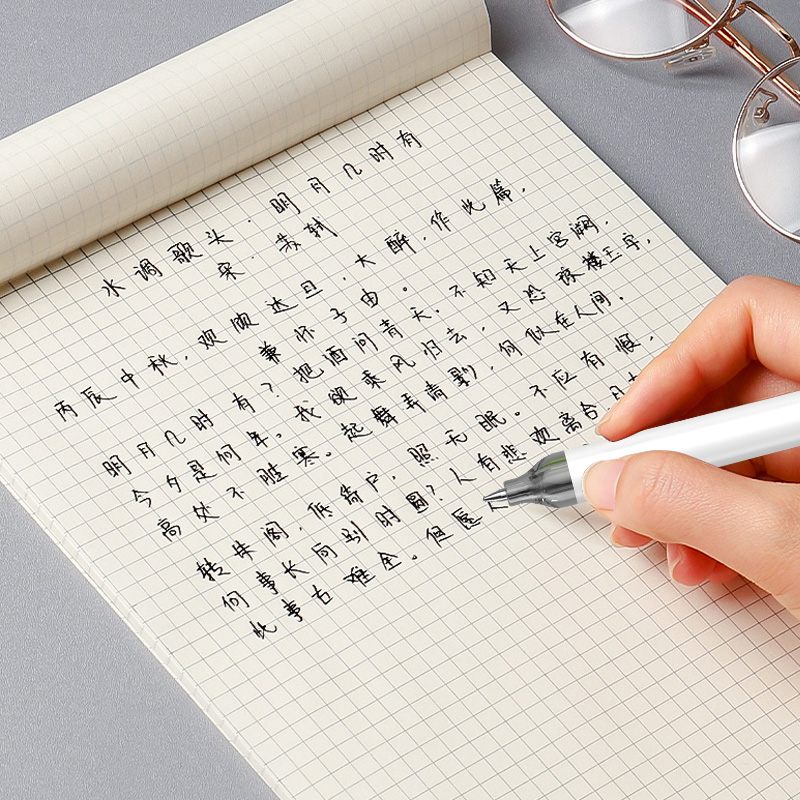 水调歌头·明月几时有
宋·苏轼
丙辰中秋,欢饮达旦,大醉,作此篇,
兼怀子由。
明月几时有?把酒问青天。不知天上宫阙,
今夕是何年。我欲乘风归去,又恐琼楼玉宇,
高处不胜寒。起舞弄清影,何似在人间。
转朱阁,低绮户,照无眠。不应有恨,
何事长向别时圆?人有悲欢离合,月
此事古难全。但愿